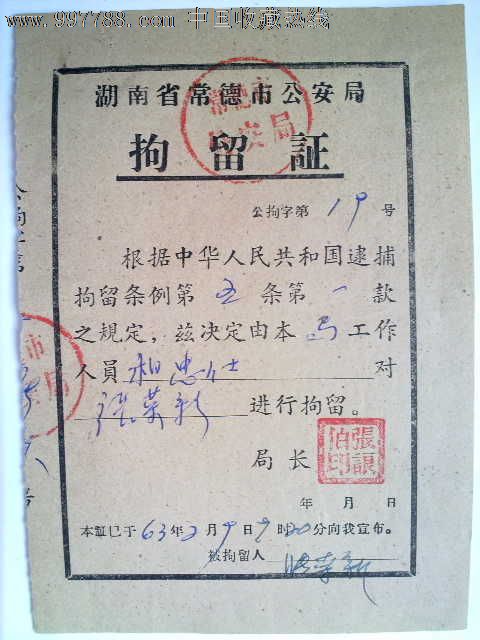 www.997788.com 中国收藏热线
湖南省常德市公安局
拘留証
公拘字第 19 号
根据中华人民共和国逮捕
拘留条例第五条第一款
之规定，兹决定由本局工作
人員 相忠 士 对
张荣新 进行拘留。
局长 張諒伯印
年 月 日
本証已于63年2月9日9时20分向我宣布。
被拘留人 张荣新